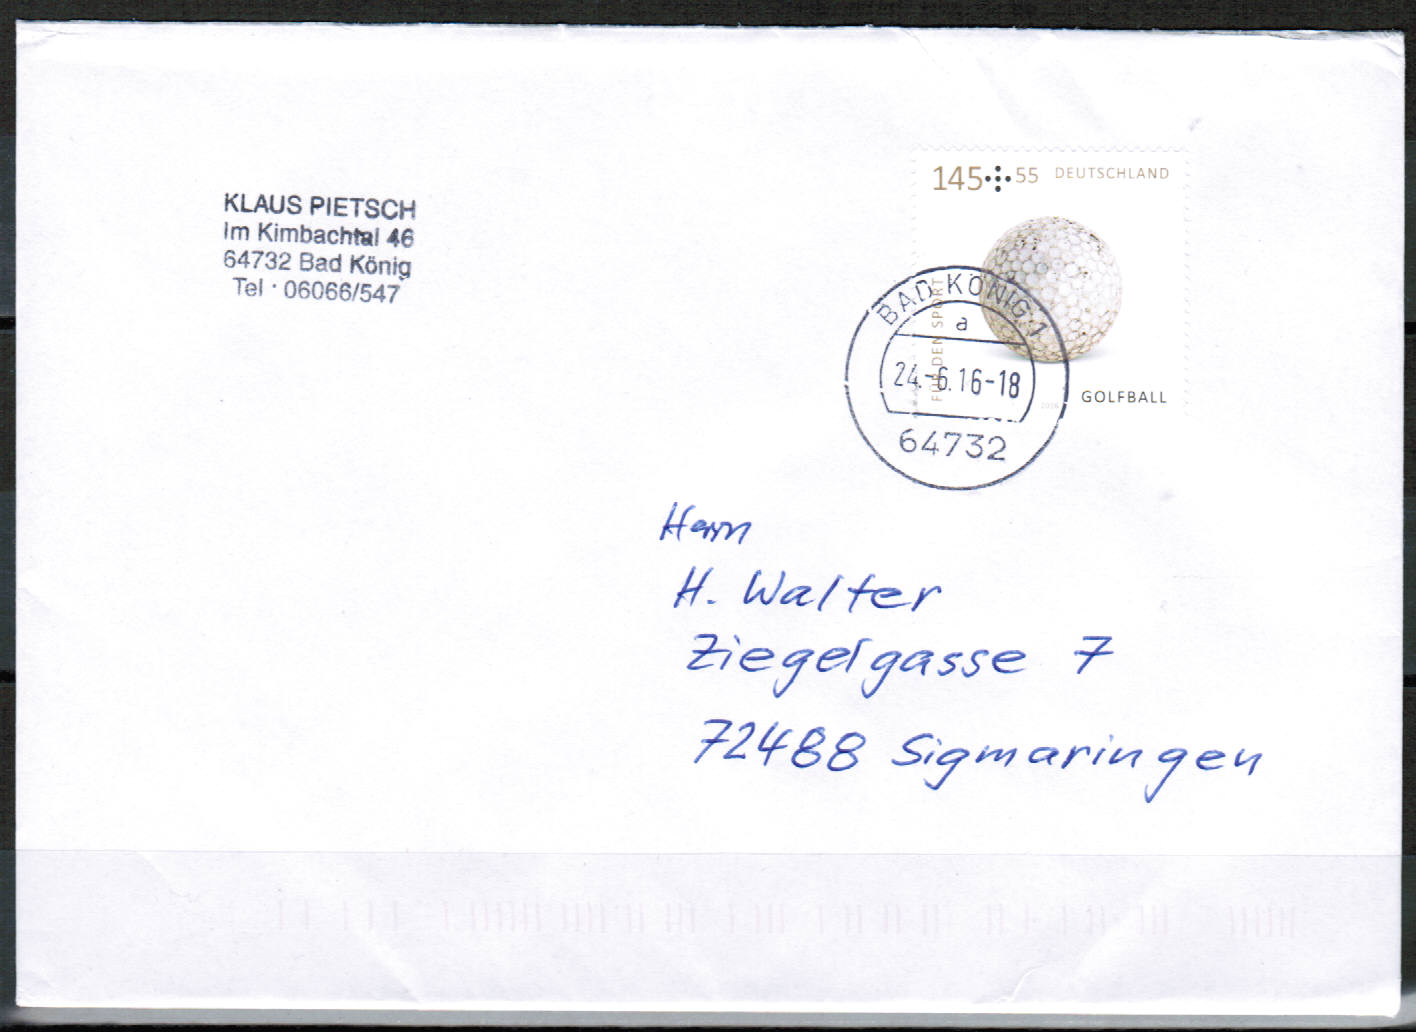 KLAUS PIETSCH
Im Kimbachtal 46
64732 Bad König
Tel · 06066/547
145 + 55 DEUTSCHLAND
FÜR DEN SPORT
BAD KÖNIG 1
a
24.-6.16-18
64732
2016
GOLFBALL
Herrn
H. Walter
Ziegelgasse 7
72488 Sigmaringen